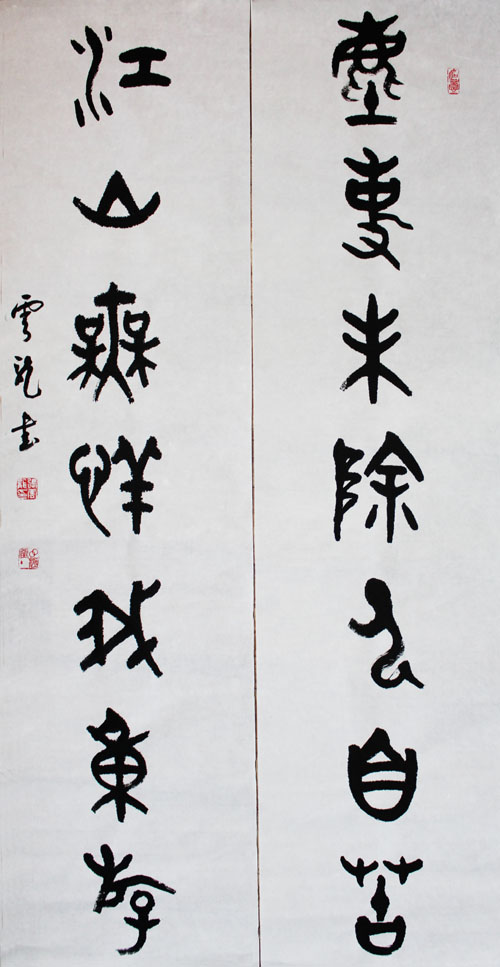 塵事未除人自苦
江山無恙我重游
雲龍書